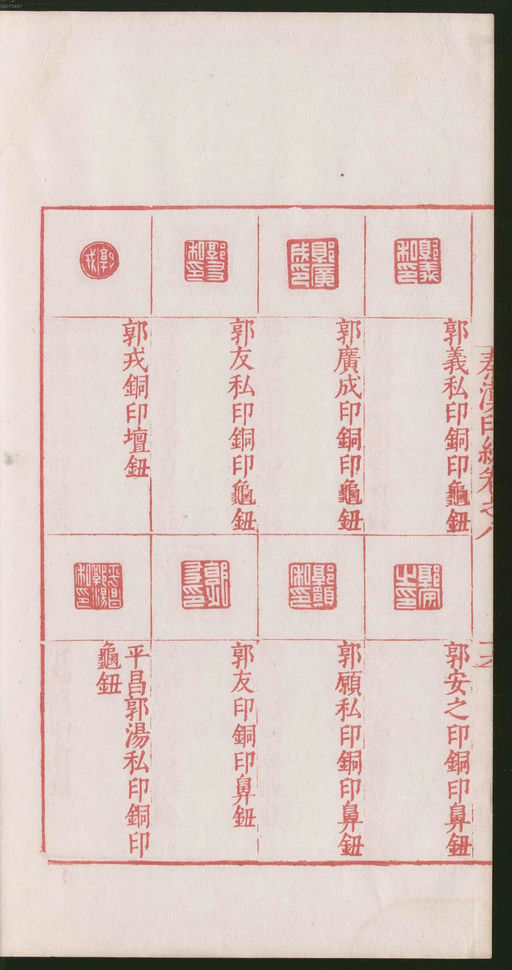 秦漢印統卷之八
郭義私印銅印龜鈕
郭廣成印銅印龜鈕
郭友私印銅印龜鈕
郭戎銅印壇鈕
郭安之印銅印鼻鈕
郭願私印銅印鼻鈕
郭友印銅印鼻鈕
平昌郭湯私印銅印
龜鈕